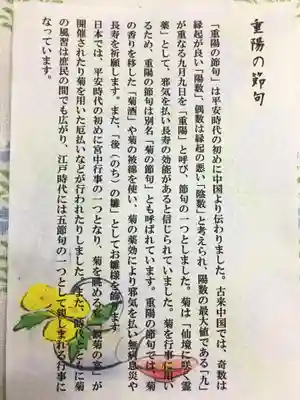 重陽の節句
「重陽の節句」は平安時代の初めに中国より伝わりました。古来中国では、奇数は
縁起が良い「陽数」、偶数は縁起の悪い「陰数」と考えられ、陽数の最大値である「九」
が重なる九月九日を「重陽」と呼び、節句の一つとしました。菊は「仙境に咲く霊
薬」として、邪気を払い長寿の効能があると信じられていました。菊を行事に用い
るため、重陽の節句は別名「菊の節句」とも呼ばれています。重陽の節句では、菊
の香りを移した「菊酒」や菊の被綿を使い、菊の薬効により邪気を払い無病息災や
長寿を祈願します。また、「後(のち)の雛」としてお雛様を飾ります
日本では、平安時代の初めに宮中行事の一つとなり、菊を眺める「観菊の宴」が
開催されたり菊を用いた厄払いなどが行われたりしました。また、時代とともに菊
の風習は庶民の間でも広がり、江戸時代には五節句の一つとして親しまれる行事に
なっています。